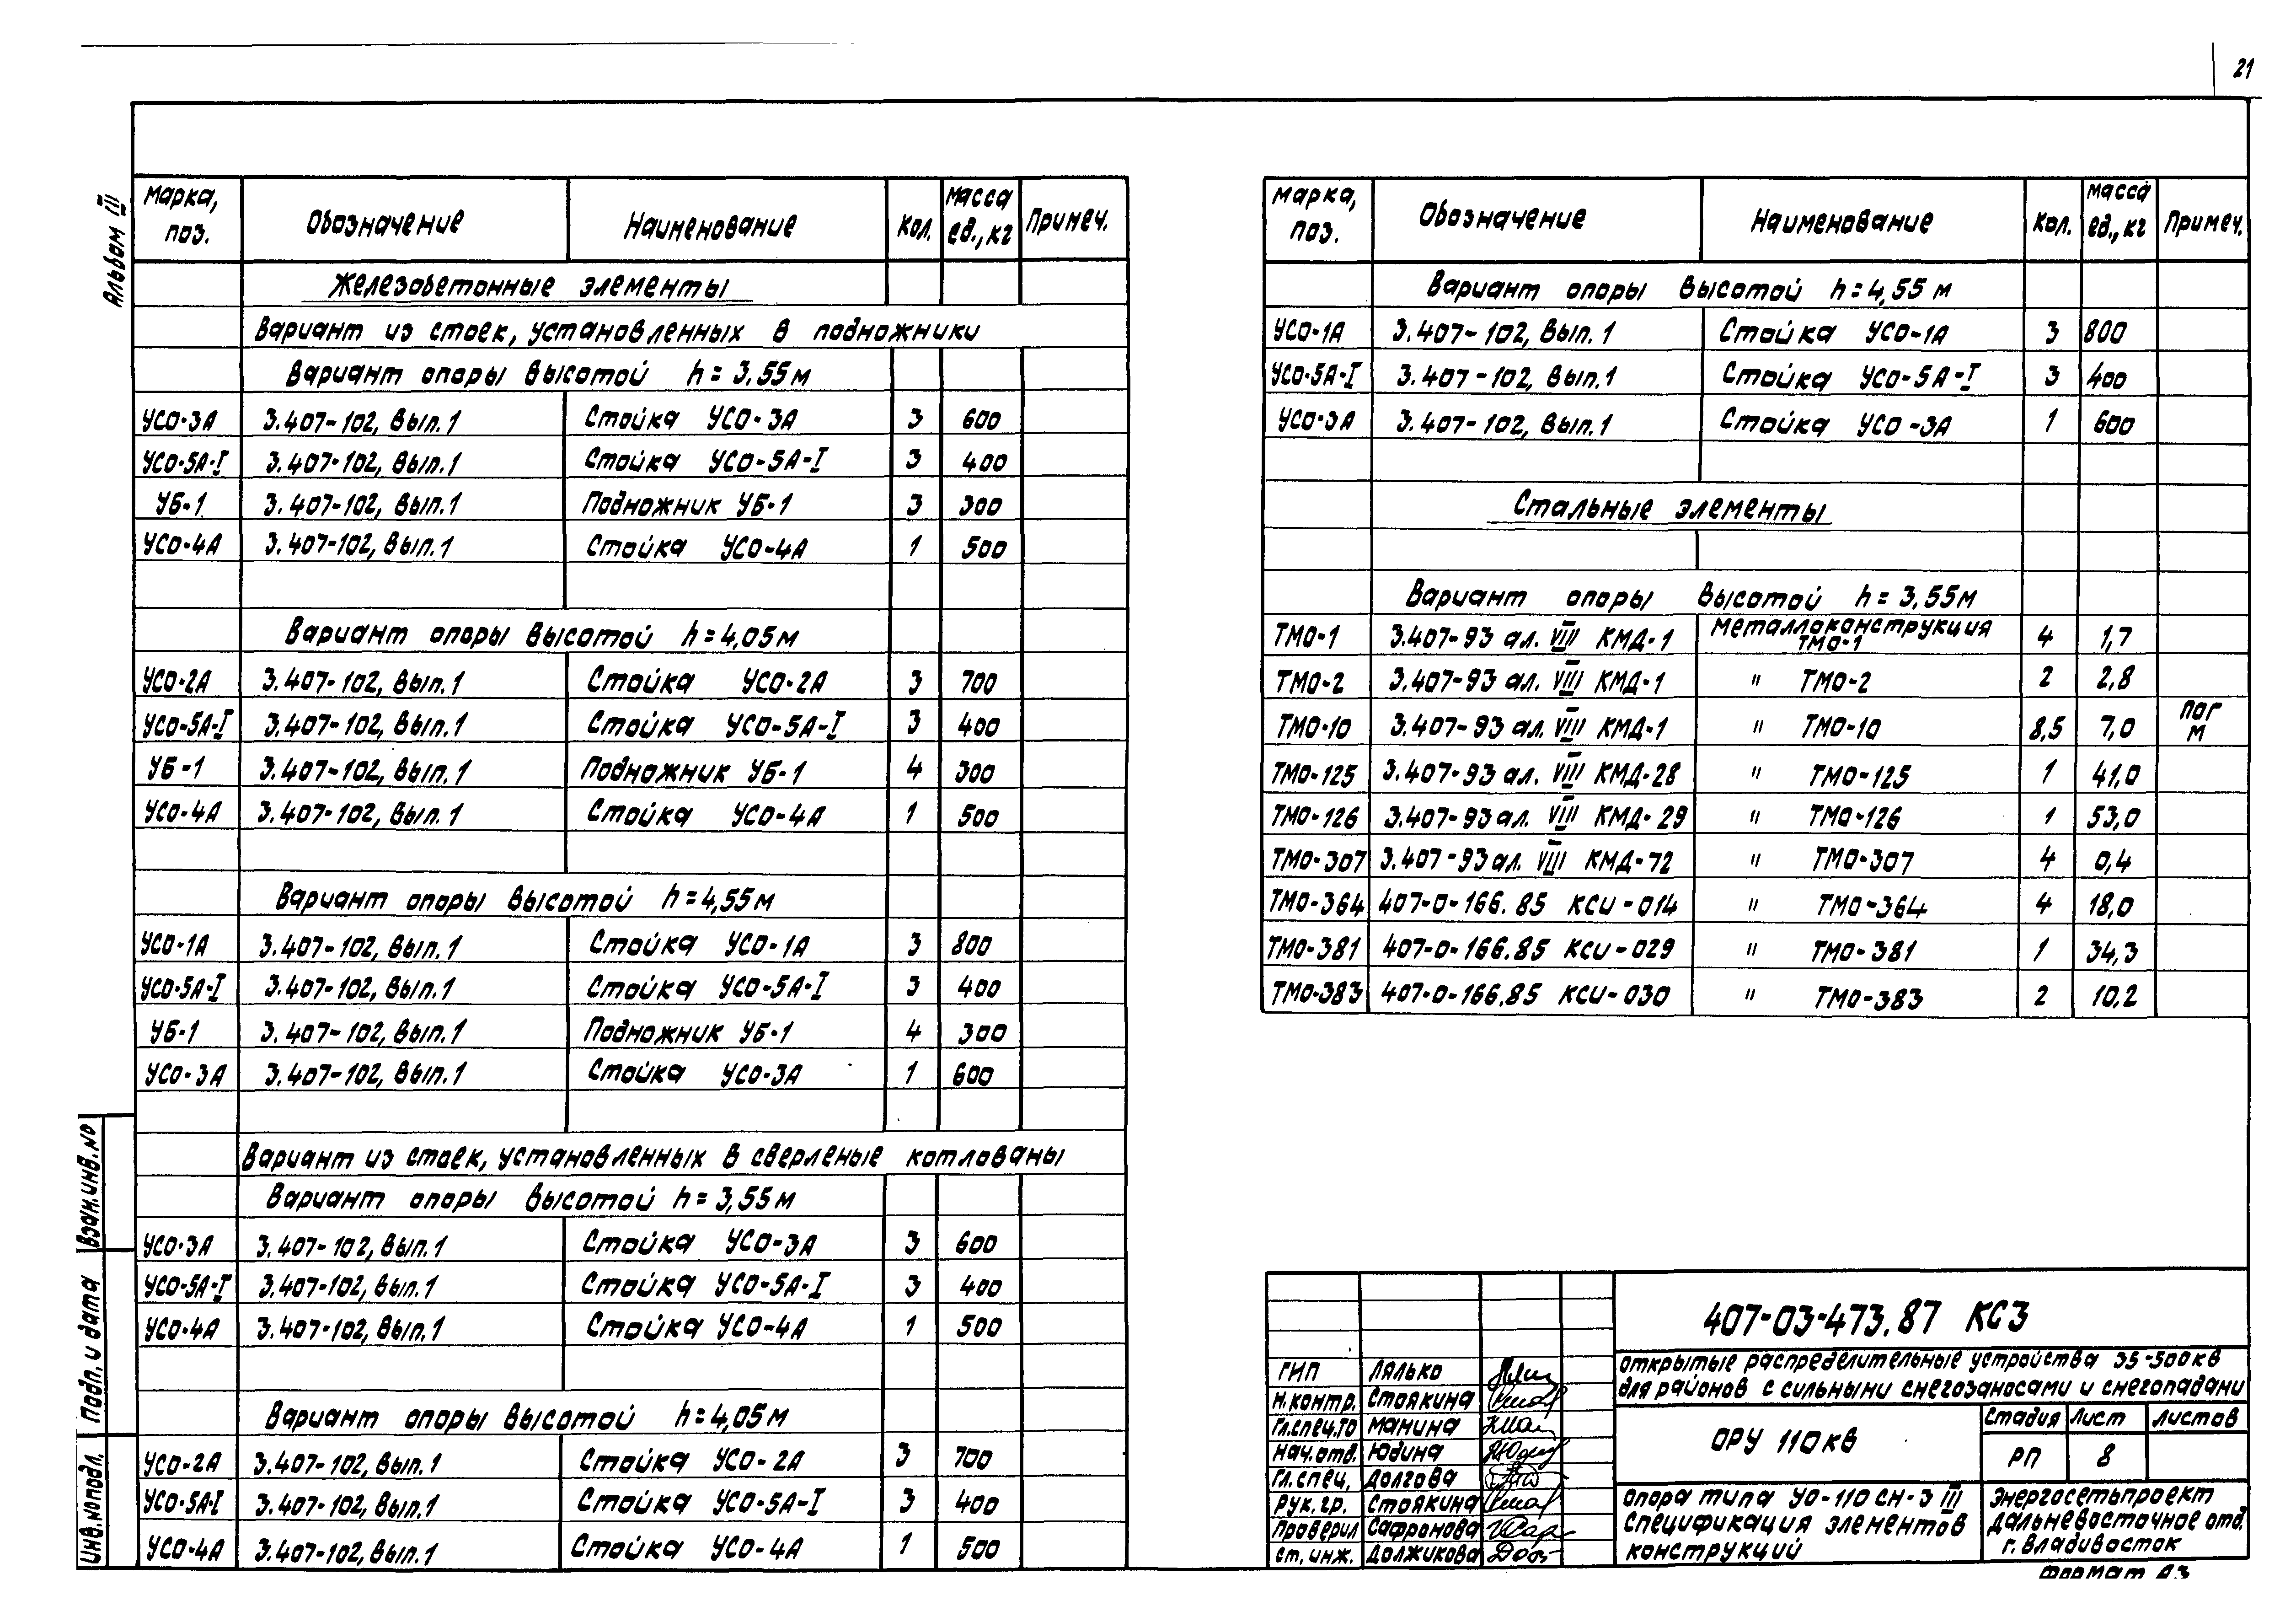 21
Альбом III
Марка, поз. Обозначение Наименование Кол. Масса ед., кг Примеч.
Железобетонные элементы
Вариант из стоек, установленных в подножники
Вариант опоры высотой h = 3,55 м
УСО-3А 3.407-102, Вып.1 Стойка УСО-3А 3 600
УСО-5А-I 3.407-102, Вып.1 Стойка УСО-5А-I 3 400
УБ-1 3.407-102, Вып.1 Подножник УБ-1 3 300
УСО-4А 3.407-102, Вып.1 Стойка УСО-4А 1 500
Вариант опоры высотой h = 4,05 м
УСО-2А 3.407-102, Вып.1 Стойка УСО-2А 3 700
УСО-5А-I 3.407-102, Вып.1 Стойка УСО-5А-I 3 400
УБ-1 3.407-102, Вып.1 Подножник УБ-1 4 300
УСО-4А 3.407-102, Вып.1 Стойка УСО-4А 1 500
Вариант опоры высотой h = 4,55 м
УСО-1А 3.407-102, Вып.1 Стойка УСО-1А 3 800
УСО-5А-I 3.407-102, Вып.1 Стойка УСО-5А-I 3 400
УБ-1 3.407-102, Вып.1 Подножник УБ-1 4 300
УСО-3А 3.407-102, Вып.1 Стойка УСО-3А 1 600
Вариант из стоек, установленных в сверленые котлованы
Вариант опоры высотой h = 3,55 м
УСО-3А 3.407-102, Вып.1 Стойка УСО-3А 3 600
УСО-5А-I 3.407-102, Вып.1 Стойка УСО-5А-I 3 400
УСО-4А 3.407-102, Вып.1 Стойка УСО-4А 1 500
Вариант опоры высотой h = 4,05 м
УСО-2А 3.407-102, Вып.1 Стойка УСО-2А 3 700
УСО-5А-I 3.407-102, Вып.1 Стойка УСО-5А-I 3 400
УСО-4А 3.407-102, Вып.1 Стойка УСО-4А 1 500
Взам.инв.№
Подп. и дата
Инв.№подл.
Марка, поз. Обозначение Наименование Кол. Масса ед., кг Примеч.
Вариант опоры высотой h = 4,55 м
УСО-1А 3.407-102, Вып.1 Стойка УСО-1А 3 800
УСО-5А-I 3.407-102, Вып.1 Стойка УСО-5А-I 3 400
УСО-3А 3.407-102, Вып.1 Стойка УСО-3А 1 600
Стальные элементы
Вариант опоры высотой h = 3,55 м
ТМО-1 3.407-93 ал. VIII КМД-1 Металлоконструкция ТМО-1 4 1,7
ТМО-2 3.407-93 ал. VIII КМД-1 " ТМО-2 2 2,8
ТМО-10 3.407-93 ал. VIII КМД-1 " ТМО-10 8,5 7,0 пог м
ТМО-125 3.407-93 ал. VIII КМД-28 " ТМО-125 1 41,0
ТМО-126 3.407-93 ал. VIII КМД-29 " ТМО-126 1 53,0
ТМО-307 3.407-93 ал. VIII КМД-72 " ТМО-307 4 0,4
ТМО-364 407-0-166.85 КСИ-014 " ТМО-364 4 18,0
ТМО-381 407-0-166.85 КСИ-029 " ТМО-381 1 34,3
ТМО-383 407-0-166.85 КСИ-030 " ТМО-383 2 10,2
407-03-473.87 КС3
Открытые распределительные устройства 35-500кВ
для районов с сильными снегозаносами и снегопадами
ГИП Лялько
Н.контр. Стоякина
Гл.спец.ТО Манина
Нач.отд. Юдина
Гл.спец. Долгова
Рук.гр. Стоякина
Проверил Сафронова
Ст.инж. Должикова
ОРУ 110кВ
Стадия Лист Листов
РП 8
Опора типа УО-110 СН-3 III
Спецификация элементов
конструкций
Энергосетьпроект
Дальневосточное отд.
г. Владивосток
Формат А3